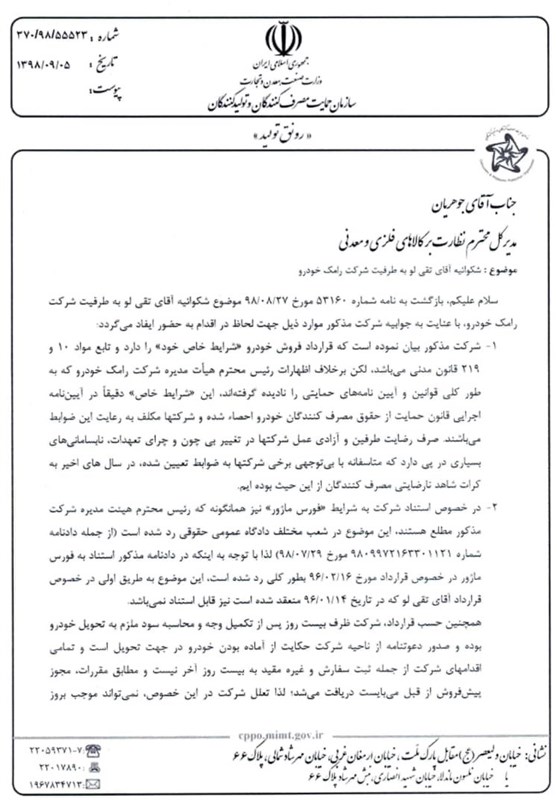 جمهوری اسلامی ایران
وزارت صنعت، معدن و تجارت
سازمان حمایت مصرف کنندگان و تولیدکنندگان
شماره : ۳۷۰/۹۸/۵۵۵۲۳
تاریخ : ۱۳۹۸/۰۹/۰۵
پیوست:
« رونق تولید »
جناب آقای جوهریان
مدیرکل محترم نظارت بر کالاهای فلزی و معدنی
موضوع : شکوائیه آقای تقی لو به طرفیت شرکت رامک خودرو
سلام علیکم، بازگشت به نامه شماره ۵۳۱۶۰ مورخ ۹۸/۰۸/۲۷ موضوع شکوائیه آقای تقی لو به طرفیت شرکت
رامک خودرو، با عنایت به جوابیه شرکت مذکور موارد ذیل جهت لحاظ در اقدام به حضور ایفاد می‌گردد:
۱- شرکت مذکور بیان نموده است که قرارداد فروش خودرو «شرایط خاص خود» را دارد و تابع مواد ۱۰ و
۲۱۹ قانون مدنی می‌باشد، لکن برخلاف اظهارات رئیس محترم هیأت مدیره شرکت رامک خودرو که به
طور کلی قوانین و آیین نامه‌های حمایتی را نادیده گرفته‌اند، این «شرایط خاص» دقیقاً در آیین‌نامه
اجرایی قانون حمایت از حقوق مصرف کنندگان خودرو احصاء شده و شرکتها مکلف به رعایت این ضوابط
می‌باشند. صرف رضایت طرفین و آزادی عمل شرکتها در تغییر بی چون و چرای تعهدات، نابسامانی‌های
بسیاری در پی دارد که متاسفانه با بی‌توجهی برخی شرکتها به ضوابط تعیین شده، در سال های اخیر به
کرات شاهد نارضایتی مصرف کنندگان از این حیث بوده ایم.
۲- در خصوص استناد شرکت به شرایط «فورس ماژور» نیز همانگونه که رئیس محترم هیئت مدیره شرکت
مذکور مطلع هستند، این موضوع در شعب مختلف دادگاه عمومی حقوقی رد شده است (از جمله دادنامه
شماره ۹۸۰۹۹۷۲۱۶۳۳۰۱۱۲۱ مورخ ۹۸/۰۷/۲۹) لذا با توجه به اینکه در دادنامه مذکور استناد به فورس
ماژور در خصوص قرارداد مورخ ۹۶/۰۲/۱۶ بطور کلی رد شده است، این موضوع به طریق اولی در خصوص
قرارداد آقای تقی لو که در تاریخ ۹۶/۰۱/۱۴ منعقد شده است نیز قابل استناد نمی‌باشد.
همچنین حسب قرارداد، شرکت ظرف بیست روز پس از تکمیل وجه و محاسبه سود ملزم به تحویل خودرو
بوده و صدور دعوتنامه از ناحیه شرکت حکایت از آماده بودن خودرو در جهت تحویل است و تمامی
اقدامهای شرکت از جمله ثبت سفارش و غیره مقید به بیست روز آخر نیست و مطابق مقررات، مجوز
پیش‌فروش از قبل می‌بایست دریافت می‌شد؛ لذا تعلل شرکت در این خصوص، نمی‌تواند موجب بروز
cppo.mimt.gov.ir
نشانی: خیابان ولیعصر (عج) مقابل پارک ملت، خیابان ارمغان غربی، خیابان مهرشاد شمالی، پلاک ۶۶
یا خیابان نلسون ماندلا، خیابان شهید انصاری، نبش مهرشاد پلاک ۶۶
۲۲۰۵۹۳۷۱-۷
۲۲۰۱۷۸۹۰
۱۹۶۷۸۳۴۷۱۳